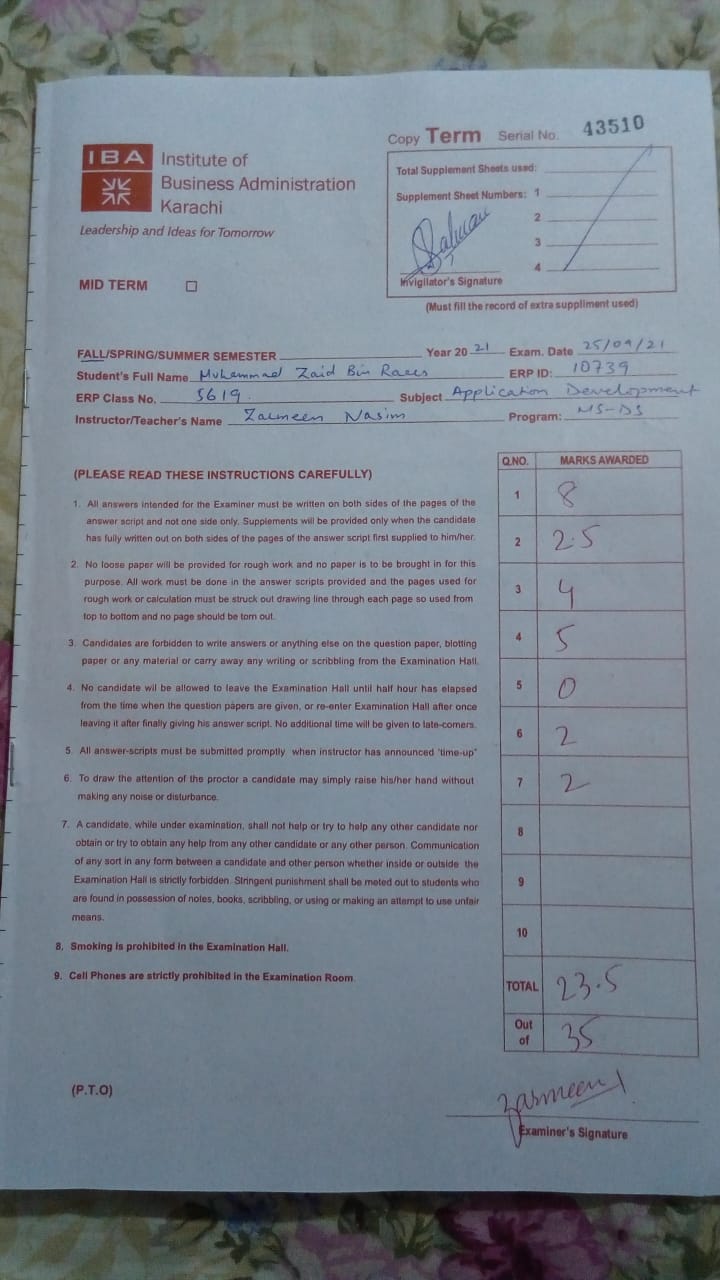 Copy Term Serial No. 43510
IBA Institute of
Business Administration
Karachi
Leadership and Ideas for Tomorrow
Total Supplement Sheets used:
Supplement Sheet Numbers: 1
2
3
4
Salman
Invigilator's Signature
(Must fill the record of extra suppliment used)
MID TERM
FALL/SPRING/SUMMER SEMESTER Year 20 21 Exam. Date 25/09/21
Student's Full Name Muhammad Zaid Bin Raees ERP ID: 10739
ERP Class No. 5619 Subject Application Development
Instructor/Teacher's Name Zarmeen Nasim Program: MS-DS
(PLEASE READ THESE INSTRUCTIONS CAREFULLY)
1. All answers intended for the Examiner must be written on both sides of the pages of the
answer script and not one side only. Supplements will be provided only when the candidate
has fully written out on both sides of the pages of the answer script first supplied to him/her.
2. No loose paper will be provided for rough work and no paper is to be brought in for this
purpose. All work must be done in the answer scripts provided and the pages used for
rough work or calculation must be struck out drawing line through each page so used from
top to bottom and no page should be torn out.
3. Candidates are forbidden to write answers or anything else on the question paper, blotting
paper or any material or carry away any writing or scribbling from the Examination Hall.
4. No candidate wil be allowed to leave the Examination Hall until half hour has elapsed
from the time when the question papers are given, or re-enter Examination Hall after once
leaving it after finally giving his answer script. No additional time will be given to late-comers.
5. All answer-scripts must be submitted promptly when instructor has announced 'time-up'
6. To draw the attention of the proctor a candidate may simply raise his/her hand without
making any noise or disturbance.
7. A candidate, while under examination, shall not help or try to help any other candidate nor
obtain or try to obtain any help from any other candidate or any other person. Communication
of any sort in any form between a candidate and other person whether inside or outside the
Examination Hall is strictly forbidden. Stringent punishment shall be meted out to students who
are found in possession of notes, books, scribbling, or using or making an attempt to use unfair
means.
8. Smoking is prohibited in the Examination Hall.
9. Cell Phones are strictly prohibited in the Examination Room.
(P.T.O)
Q.NO. MARKS AWARDED
1 8
2 2.5
3 4
4 5
5 0
6 2
7 2
8
9
10
TOTAL 23.5
Out of 35
Zarmeen
Examiner's Signature